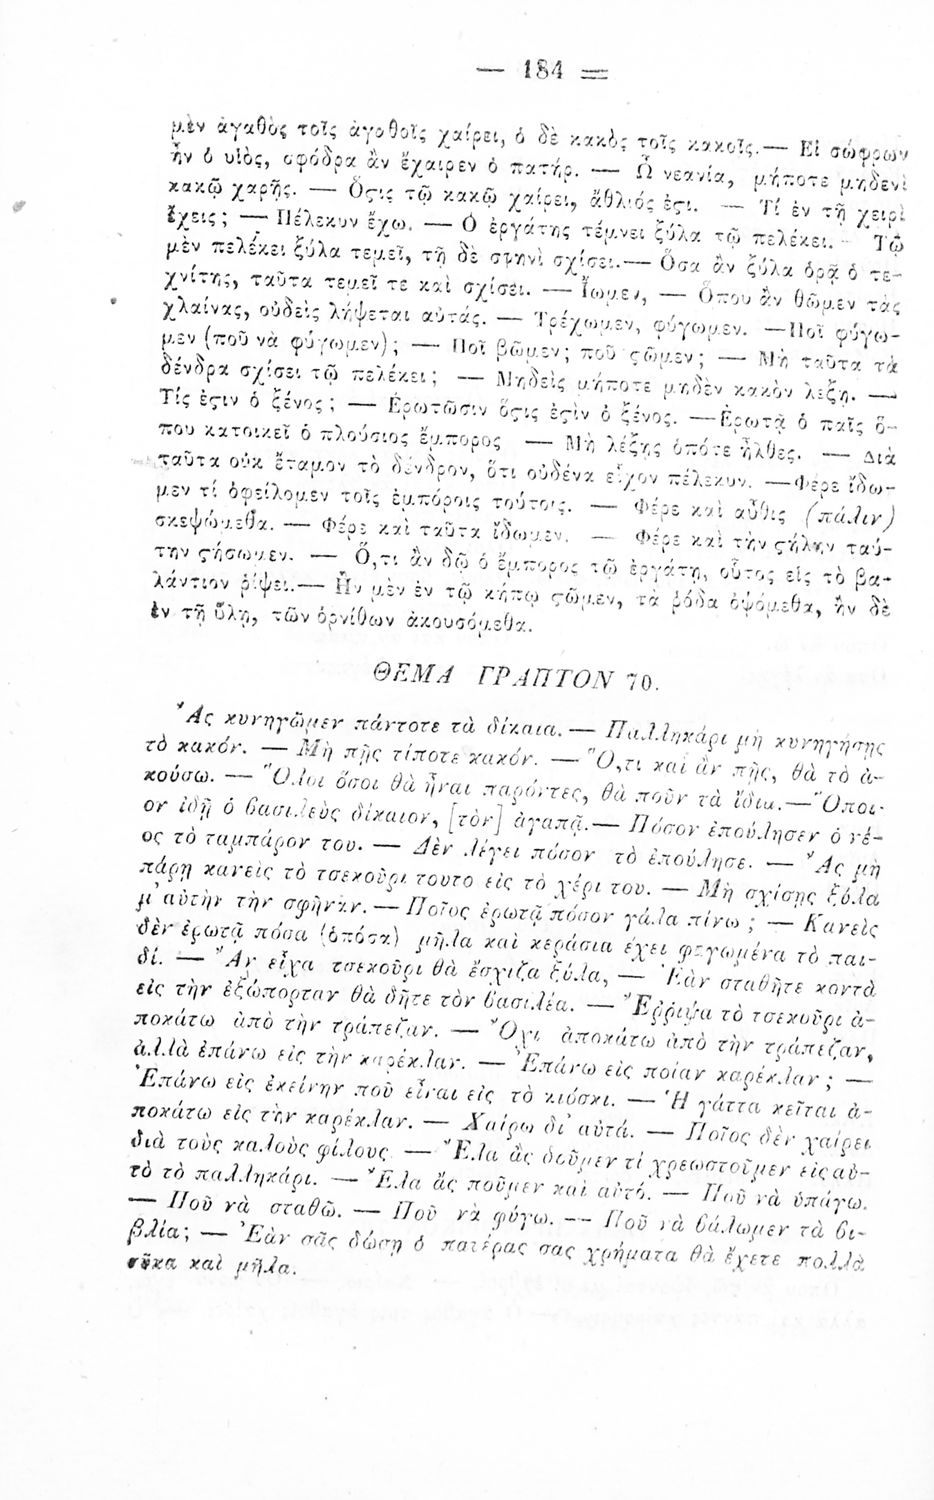 — 184 —
μὲν ἀγαθὸς τοῖς ἀγαθοῖς χαίρει, ὁ δὲ κακὸς τοῖς κακοῖς.— Εἰ σώφρων
ἦν ὁ υἱὸς, σφόδρα ἂν ἔχαιρεν ὁ πατήρ. — Ὦ νεανία, μήποτε μηδενὶ
κακῷ χαρῇς. — Ὅςις τῷ κακῷ χαίρει, ἄθλιός ἐςι. — Τί ἐν τῇ χειρὶ
ἔχεις; — Πέλεκυν ἔχω. — Ὁ ἐργάτης τέμνει ξύλα τῷ πελέκει. — Τῷ
μὲν πελέκει ξύλα τεμεῖ, τῇ δὲ σφηνὶ σχίσει.— Ὅσα ἂν ξύλα ὁρᾷ ὁ τε-
χνίτης, ταῦτα τεμεῖ τε καὶ σχίσει. — Ἴωμεν, — Ὅπου ἂν θῶμεν τὰς
χλαίνας, οὐδεὶς λήψεται αὐτάς. — Τρέχωμεν, φύγωμεν. —Ποῖ φύγω-
μεν (ποῦ νὰ φύγωμεν); — Ποῖ βῶμεν; ποῦ ςῶμεν; — Μὴ ταῦτα τὰ
δένδρα σχίσει τῷ πελέκει; — Μηδεὶς μήποτε μηδὲν κακὸν λέξῃ. —
Τίς ἐςιν ὁ ξένος; — Ἐρωτῶσιν ὅςις ἐςὶν ὁ ξένος. —Ἐρωτᾷ ὁ παῖς ὅ-
που κατοικεῖ ὁ πλούσιος ἔμπορος — Μὴ λέξῃς ὁπότε ἦλθες. — Διὰ
ταῦτα οὐκ ἔταμον τὸ δένδρον, ὅτι οὐδένα εἶχον πέλεκυν. —Φέρε ἴδω-
μεν τί ὀφείλομεν τοῖς ἐμπόροις τούτοις. — Φέρε καὶ αὖθις (πάλιν)
σκεψώμεθα. — Φέρε καὶ ταῦτα ἴδωμεν. — Φέρε καὶ τὴν ςήλην ταύ-
την ςήσωμεν. — Ὅ,τι ἂν δῷ ὁ ἔμπορος τῷ ἐργάτῃ, οὗτος εἰς τὸ βα-
λάντιον ῥίψει.— Ἢν μὲν ἐν τῷ κήπῳ ςῶμεν, τὰ ῥόδα ὀψόμεθα, ἢν δὲ
ἐν τῇ ὕλῃ, τῶν ὀρνίθων ἀκουσόμεθα.
ΘΕΜΑ ΓΡΑΠΤΟΝ 70.
Ἂς κυνηγῶμεν πάντοτε τὰ δίκαια. — Παλληκάρι μὴ κυνηγήσῃς
τὸ κακόν. — Μὴ πῇς τίποτε κακόν. — Ὅ,τι καὶ ἂν πῇς, θὰ τὸ ἀ-
κούσω. — Ὅλοι ὅσοι θὰ ἦναι παρόντες, θὰ ποῦν τὰ ἴδια.—Ὅποι-
ον ἰδῇ ὁ βασιλεὺς δίκαιον, [τὸν] ἀγαπᾷ.— Πόσον ἐπούλησεν ὁ νέ-
ος τὸ ταμπάρον του. — Δὲν λέγει πόσον τὸ ἐπούλησε. — Ἂς μὴ
πάρῃ κανεὶς τὸ τσεκοῦρι τοῦτο εἰς τὸ χέρι του. — Μὴ σχίσῃς ξύλα
μ' αὐτὴν τὴν σφῆναν. — Ποῖος ἐρωτᾷ πόσον γάλα πίνω; — Κανεὶς
δὲν ἐρωτᾷ πόσα (ὁπόσα) μῆλα καὶ κεράσια ἔχει φαγωμένα τὸ παι-
δί. — Ἂν εἶχα τσεκοῦρι θὰ ἔσχιζα ξύλα, — Ἐὰν σταθῆτε κοντὰ
εἰς τὴν ἐξώπορταν θὰ δῆτε τὸν βασιλέα. — Ἔρριψα τὸ τσεκοῦρι ἀ-
ποκάτω ἀπὸ τὴν τράπεζαν. — Ὄχι ἀποκάτω ἀπὸ τὴν τράπεζαν,
ἀλλὰ ἐπάνω εἰς τὴν καρέκλαν. — Ἐπάνω εἰς ποίαν καρέκλαν; —
Ἐπάνω εἰς ἐκείνην ποῦ εἶναι εἰς τὸ κιόσκι. — Ἡ γάττα κεῖται ἀ-
ποκάτω εἰς τὴν καρέκλαν. — Χαίρω δι' αὐτά. — Ποῖος δὲν χαίρει
διὰ τοὺς καλοὺς φίλους — Ἔλα ἂς δοῦμεν τί χρεωστοῦμεν εἰς αὐ-
τὸ τὸ παλληκάρι. — Ἔλα ἂς ποῦμεν καὶ αὐτό. — Ποῦ νὰ ὑπάγω.
— Ποῦ νὰ σταθῶ. — Ποῦ νὰ φύγω. — Ποῦ νὰ βάλωμεν τὰ βι-
βλία; — Ἐὰν σᾶς δώσῃ ὁ πατέρας σας χρήματα θὰ ἔχετε πολλὰ
σῦκα καὶ μῆλα.